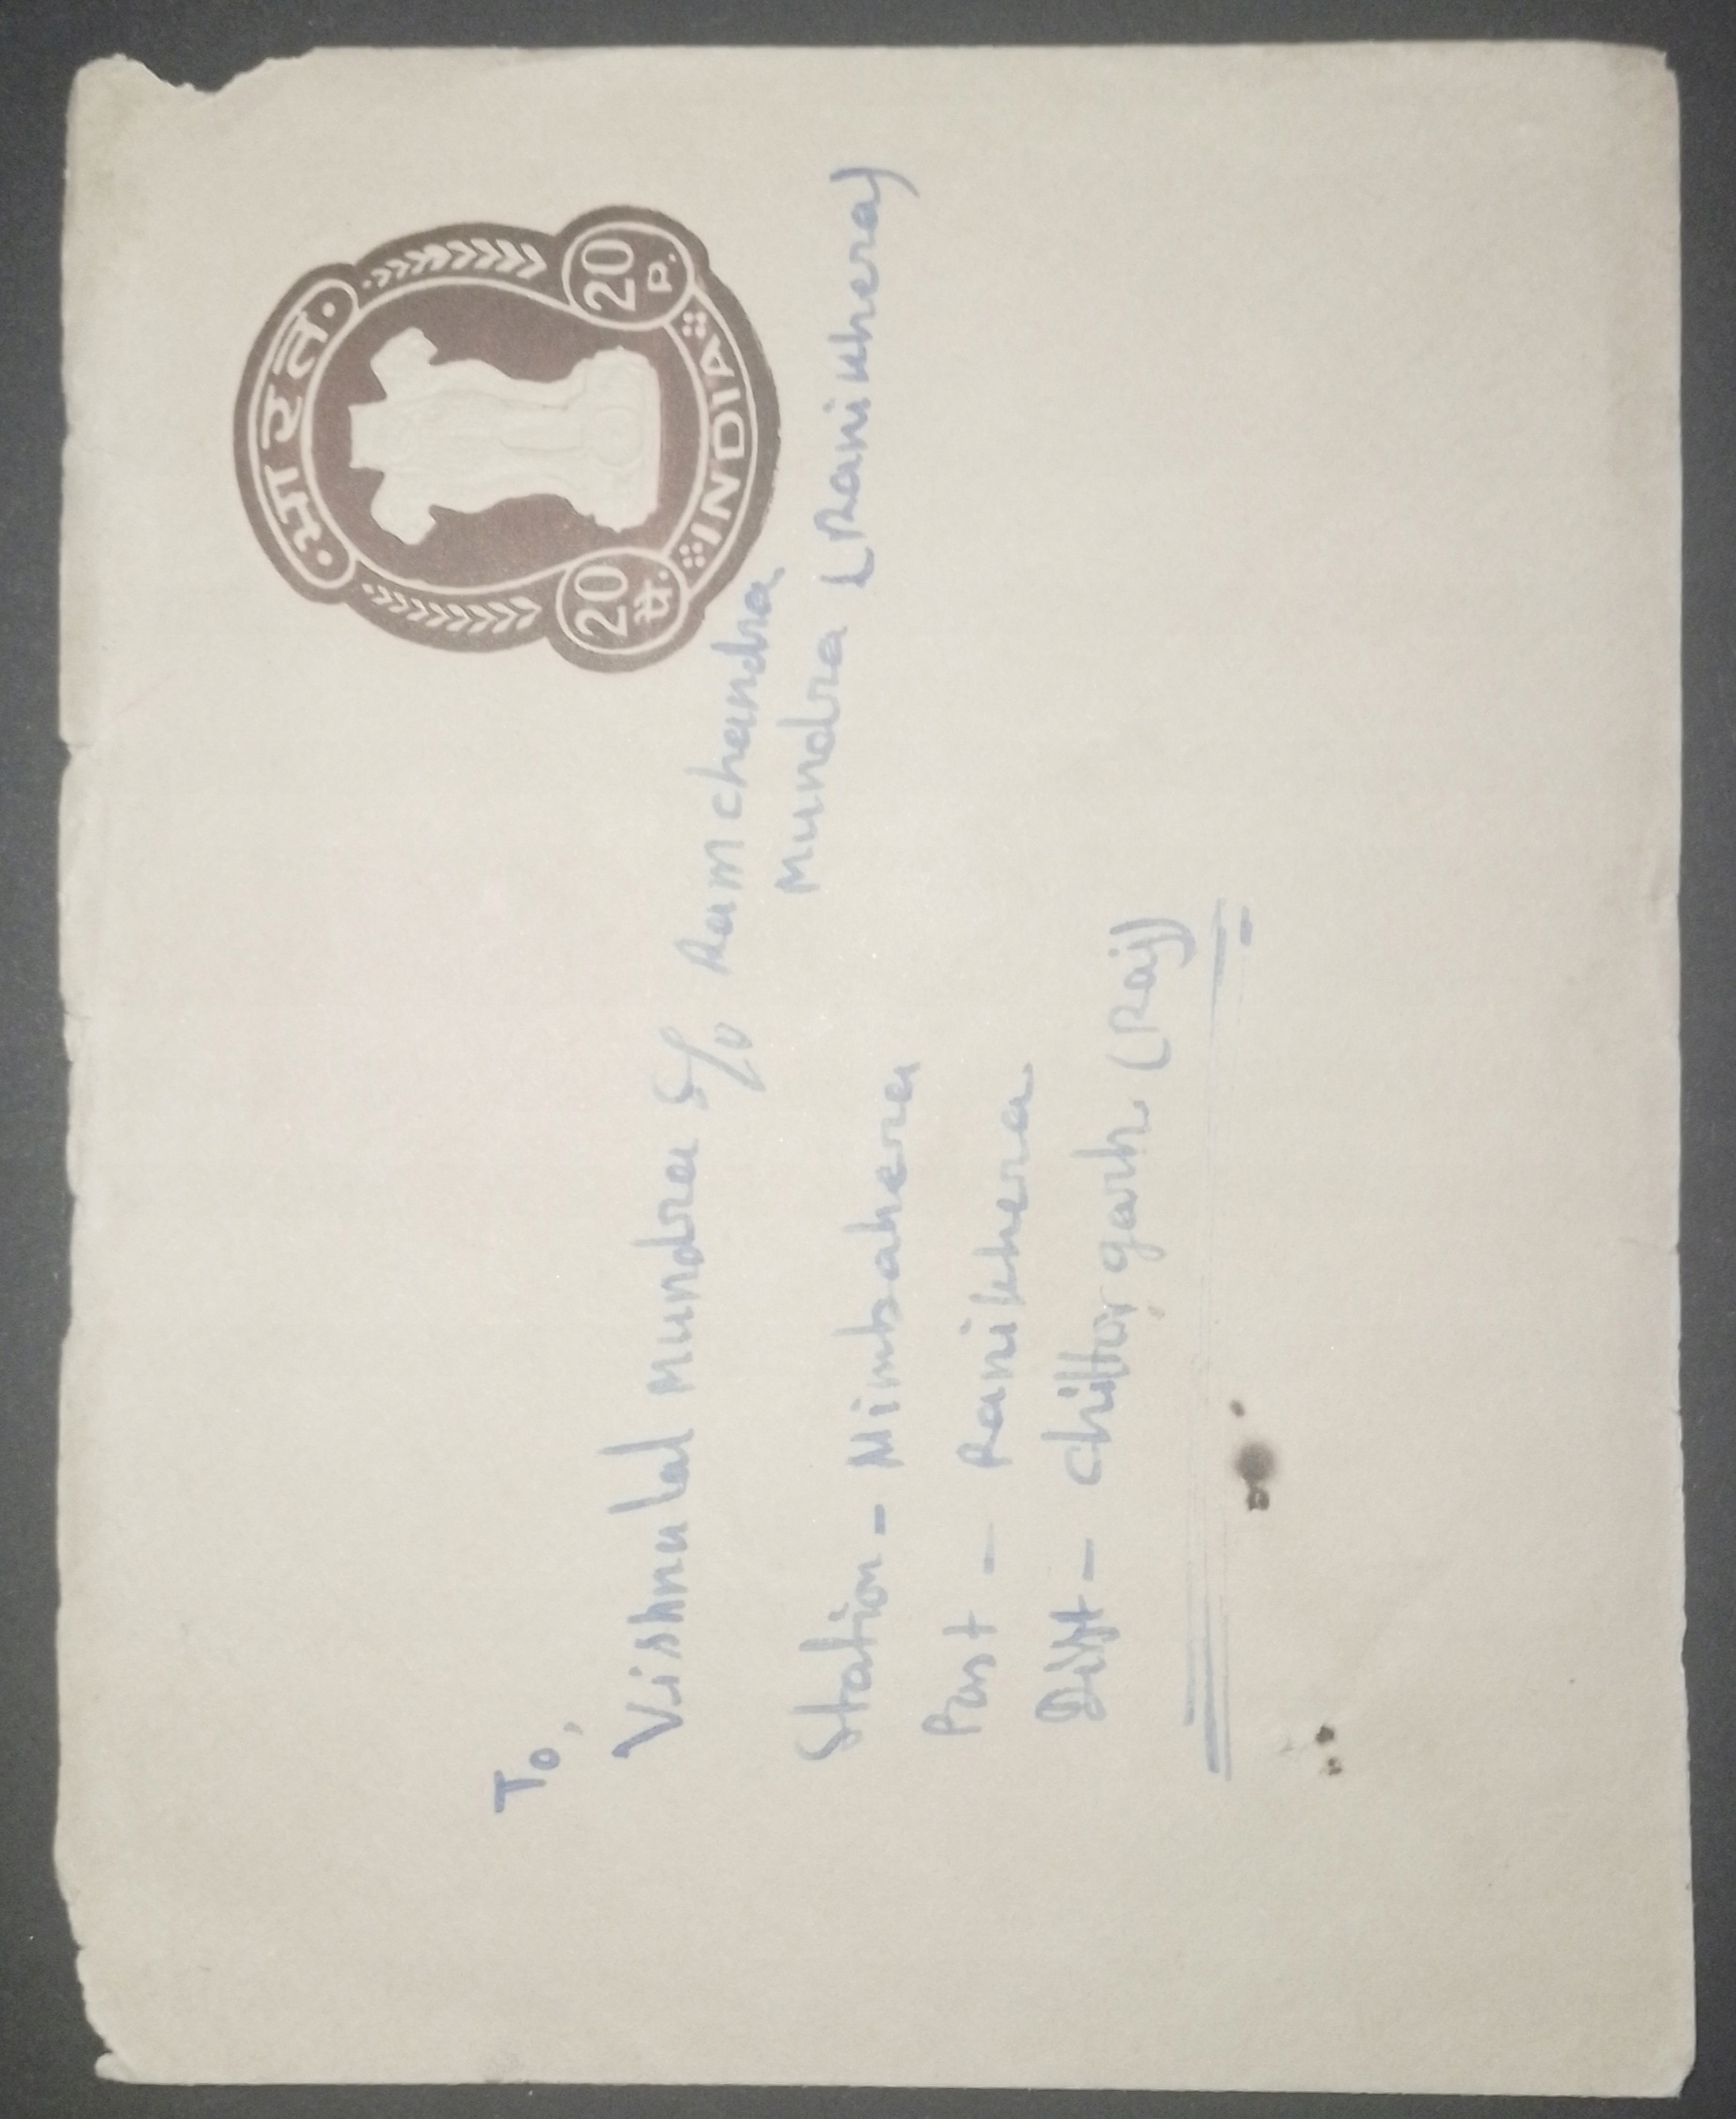 भारत
20 प.
20 P.
INDIA
To,
Vishnu Lal Mundra S/o Ramchandra
Mundra (Ranikhera)
Station - Nimbahera
Post - Ranikhera
Distt - Chittorgarh (Raj)